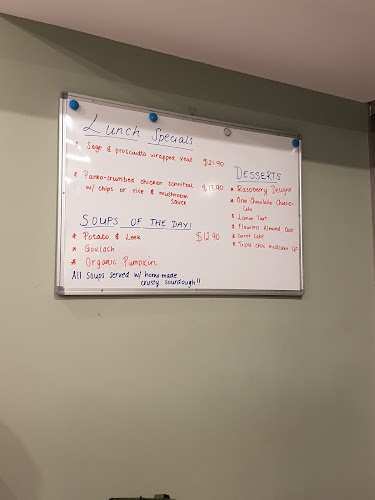 Lunch Specials
* Sage & prosciutto wrapped veal $21.90
* Panko-crumbed chicken schnitzel
w/ chips or rice & mushroom
sauce
SOUPS OF THE DAY!
* Potato & Leek $12.90
* Goulash
* Organic Pumpkin
All soups served w/ home-made
crusty sourdough!!
DESSERTS
* Raspberry Delight
* Oreo Chocolate Cheese-
Cake
* Lemon Tart
* Flourless Almond
* Carrot Cake
* Triple choc GF